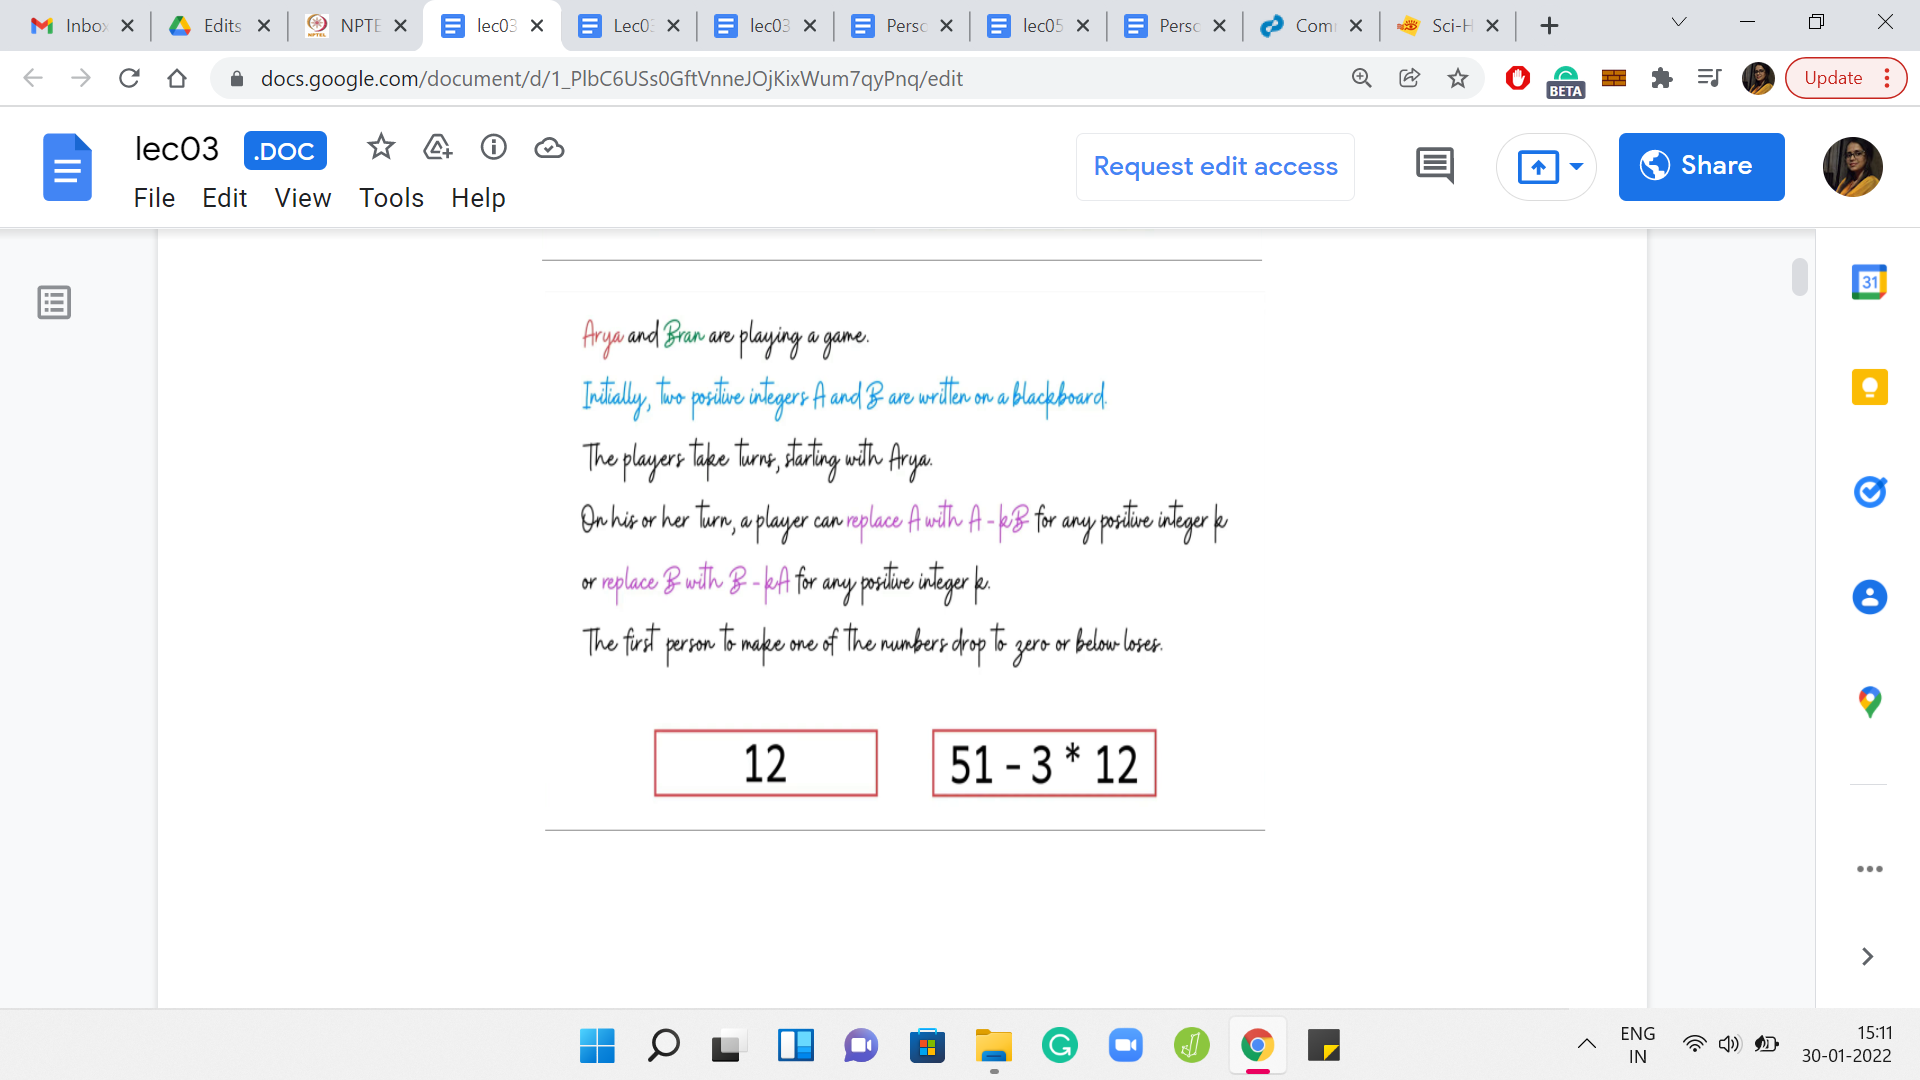 Inbox
Edits
NPTE
lec03
Lec03
lec03
Perso
lec05
Perso
Com
Sci-H
docs.google.com/document/d/1_PlbC6USs0GftVnneJOjKixWum7qyPnq/edit
BETA
Update
lec03 .DOC
File Edit View Tools Help
Request edit access
Share
31
Arya and Bran are playing a game.
Initially, two positive integers A and B are written on a blackboard.
The players take turns, starting with Arya.
On his or her turn, a player can replace A with A - kB for any positive integer k
or replace B with B - kA for any positive integer k.
The first person to make one of the numbers drop to zero or below loses.
12
51 - 3 * 12
ENG
IN
15:11
30-01-2022